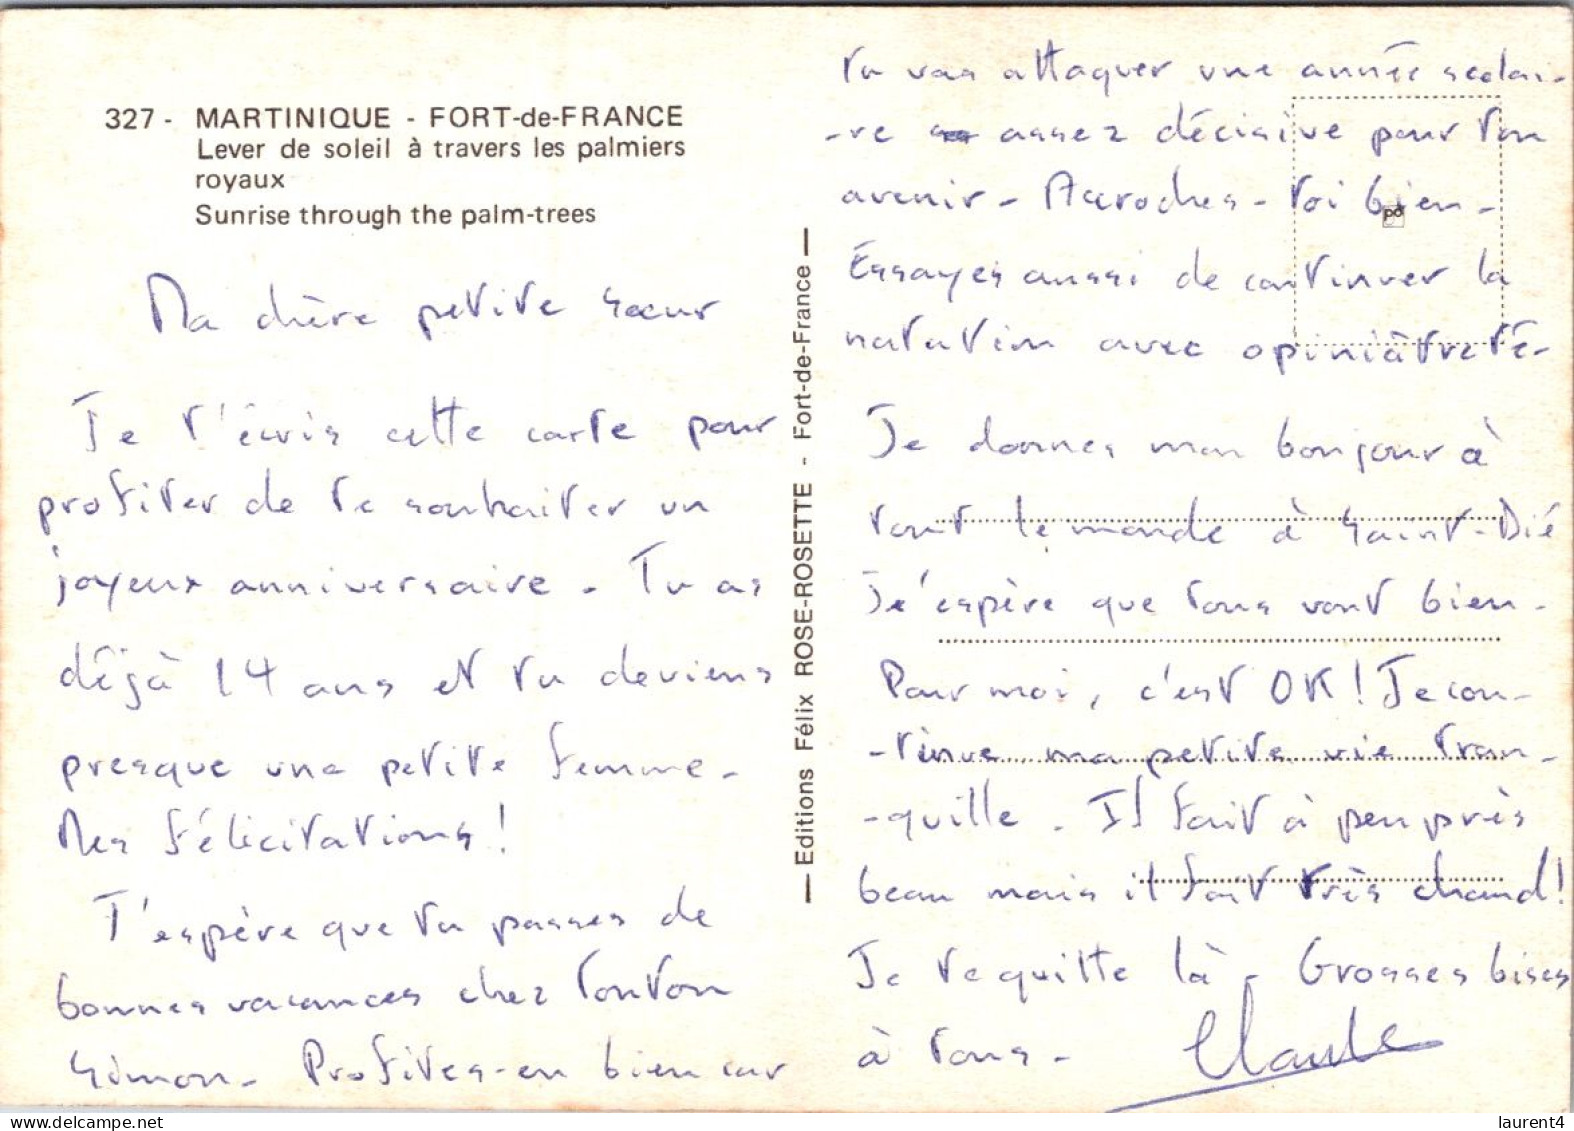 327 - MARTINIQUE - FORT-de-FRANCE
Lever de soleil à travers les palmiers
royaux
Sunrise through the palm-trees
Ma chère petite soeur
Je t'écris cette carte pour
profiter de te souhaiter un
joyeux anniversaire - Tu as
déjà 14 ans et tu deviens
presque une petite femme -
Mes félicitations !
J'espère que tu passes de
bonnes vacances chez tonton
Simon - Profites-en bien car
— Editions Félix ROSE-ROSETTE - Fort-de-France —
tu vas attaquer une année scolai-
-re assez décisive pour ton
avenir - Accroches-toi bien -
Essayes aussi de continuer la
natation avec opiniâtreté -
Je donnes mon bonjour à
tout le monde à Saint-Dié
Je'espère que tous vont bien -
Pour moi, c'est OK ! Je con-
-tinue ma petite vie tran-
-quille . Il fait à peu près
beau mais il fait très chaud !
Je te quitte là - Grosses bises
à tous -
Claude
laurent4